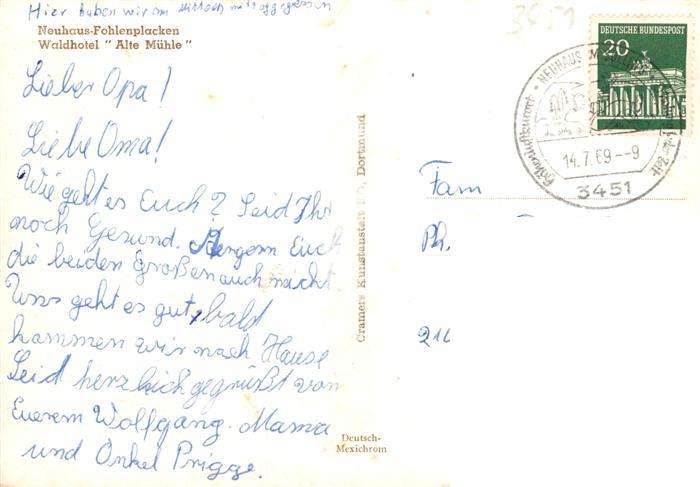 Hier haben wir am Mittwoch mit gegessen
Neuhaus-Fohlenplacken
Waldhotel "Alte Mühle"
Lieber Opa!
Liebe Oma!
Wie geht es Euch? Seid Ihr
noch Gesund. Ärgern Euch
die beiden Großen auch nicht
Uns geht es gut, bald
kommen wir nach Hause
Seid herzlich gegrüßt von
Euerem Wolfgang. Mama
und Onkel Prigge.
Cramers Kunstanstalt Dortmund
Deutsch-
Mexichrom
3451
DEUTSCHE BUNDESPOST
20
NEUHAUS
Höhenluftkurort
14.7.69--9
3451
Fam
Ph.
216